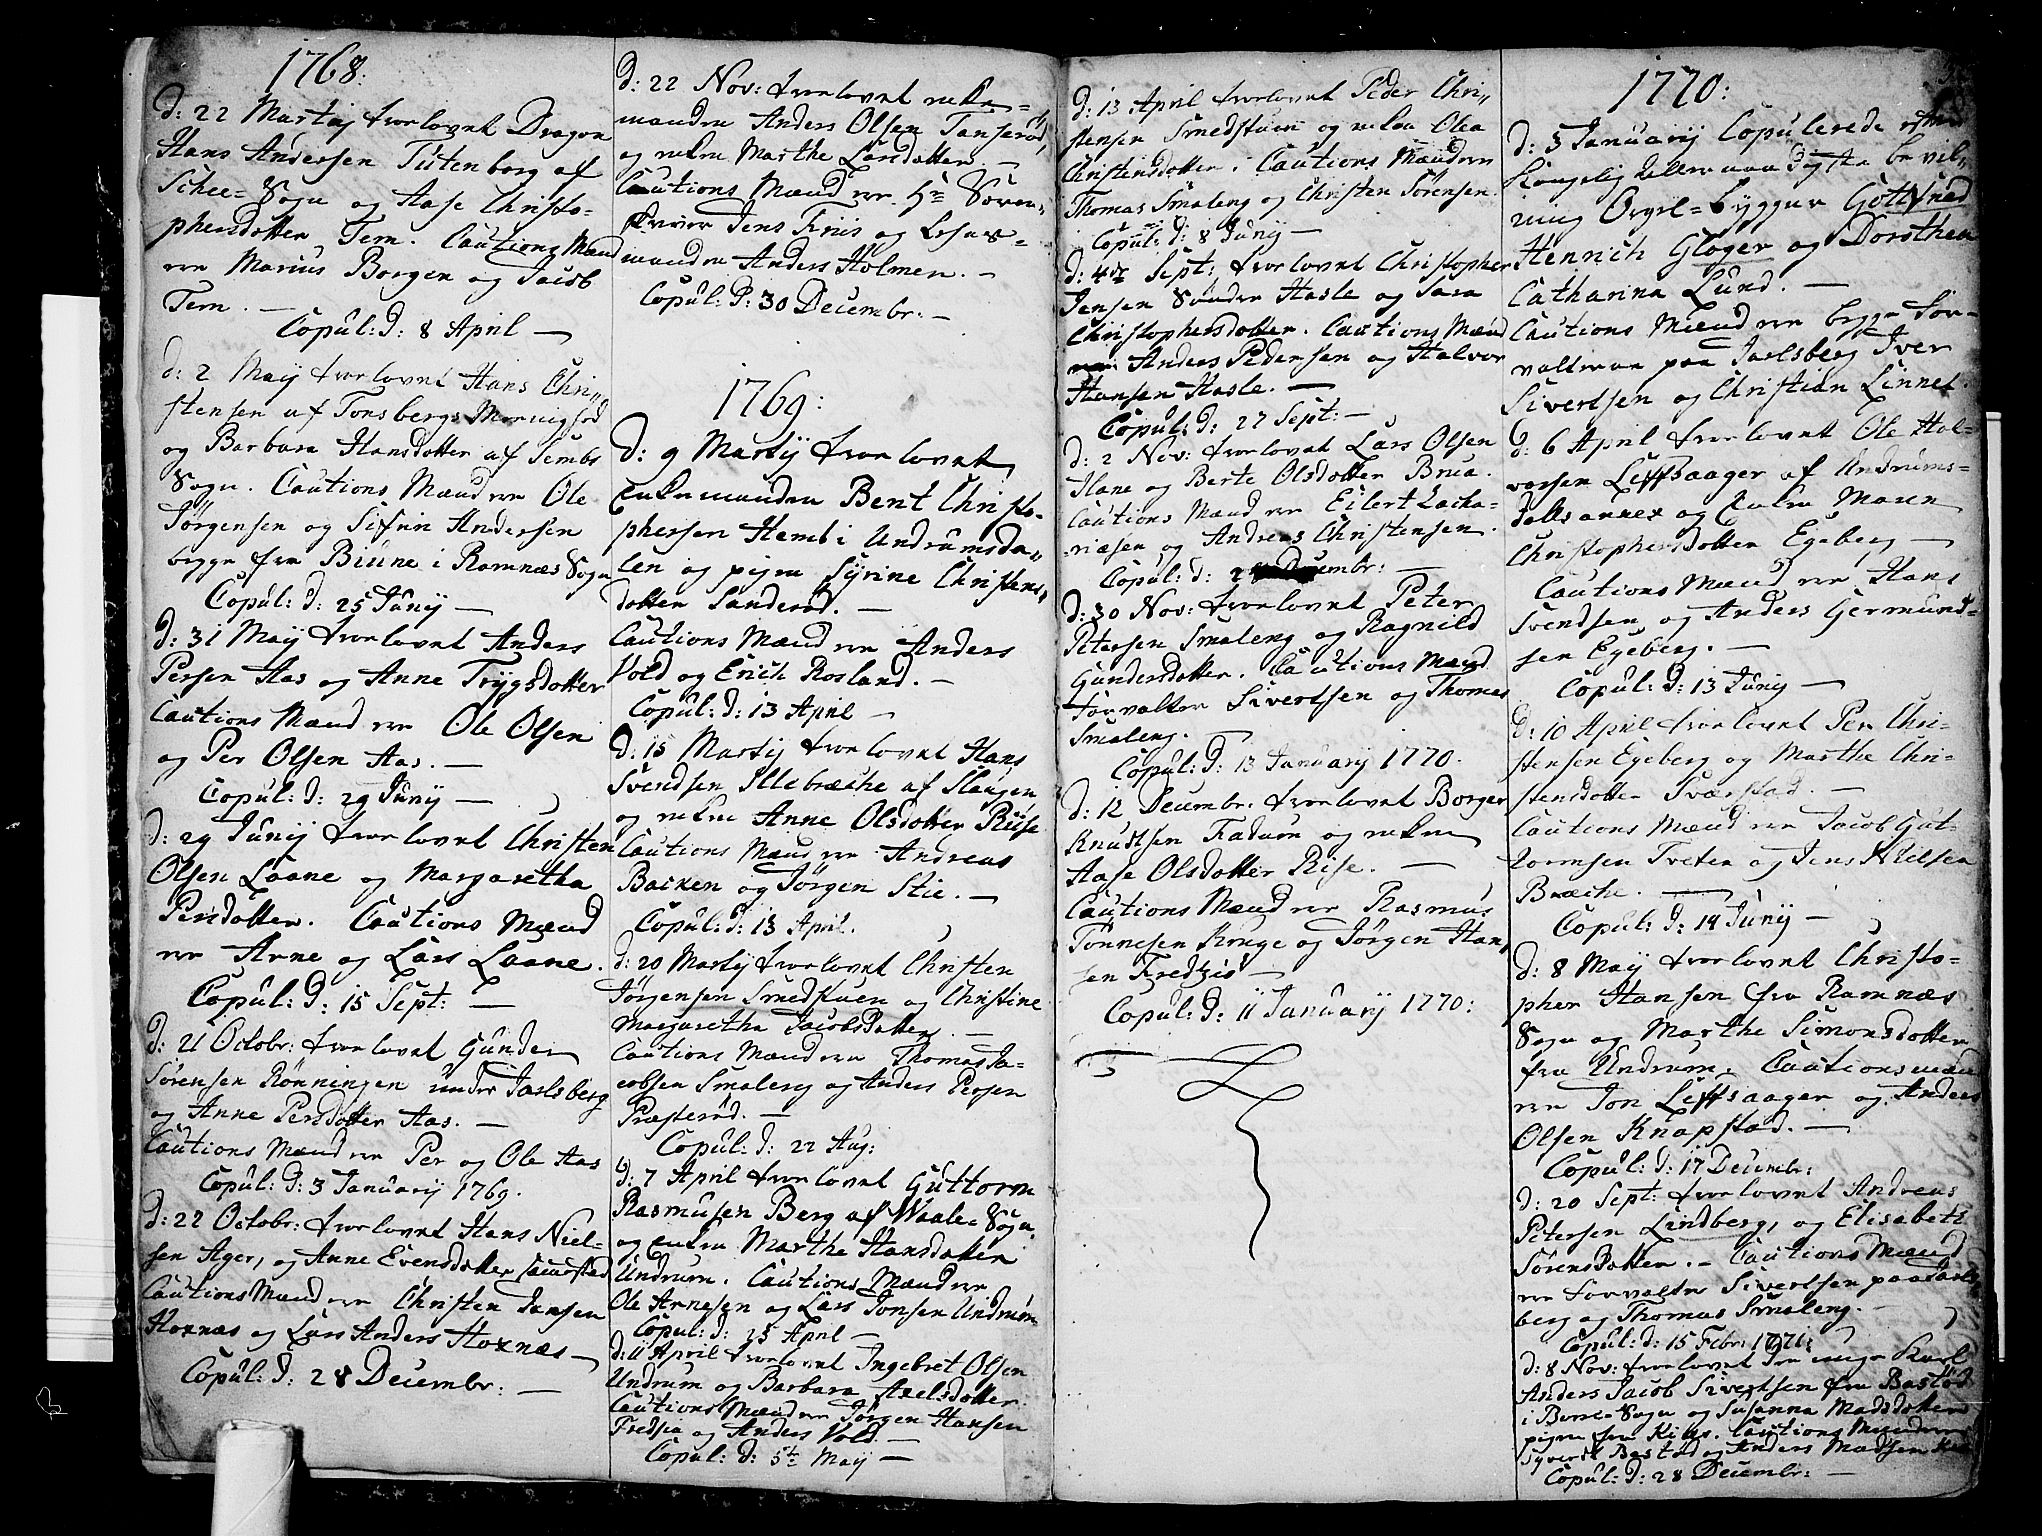 1768:
d: 22 Martij trorlovet Dragon
Hans Andersen Tutenborg af
Schee-Sogn og Aase Christo-
phersdotter Tem. Cautions Mænd
ere Marius Borgen og Jacob
Tem. —
Copul: d: 8 April —
d: 2 Maij trorlovet Hans Chri-
stensen af Tonsbergs
og Barbara Hansdotter af Sembs
Sogn. Cautions Mænd ere Ole
Jørgensen og Andersen
begge fra i Ramnæs Sogn
Copul: d: 25 Junij —
d: 31 Maij trorlovet Anders
Persen Aas og Anne Trygsdotter
Cautions Mænd ere Ole Olsen
og Per Olsen Aas. —
Copul: d: 29 Junij —
d: 29 Junij trorlovet Christen
Olsen Laane og Margaretha
Persdotter. Cautions Mænd
ere Arne og Lars Laane.
Copul: d: 15 Sept: —
d: 21 Octobr: trorlovet Gunder
Sørensen Rønningen under Jarlsberg
og Anne Persdotter Aas. —
Cautions Mænd ere Per og Ole Aas
Copul: d: 3 Januarij 1769.
d: 22 Octobr: trorlovet Hans Niel-
sen Ager, og Anne Evensdotter
Cautions Mænd ere Christen Jansen
Hoxnæs og Lars Anders Hoxnæs —
Copul: d: 28 Decembr: —
d: 22 Nov: trorlovet enke-
manden Anders Olsen Tanserød,
og enken Marthe Larsdotter. —
Cautions Mænd ere Hr Soren-
skriver Jens Friis og Lehns-
manden Anders Holmen. —
Copul: d: 30 Decembr: —
1769:
d: 9 Martij trorlovet
Enkemanden Bent Christo-
phersen Hemb i Undrumsda-
len og pigen Syrine Christens-
dotter Sanderød. —
Cautions Mænd ere Anders
Vold og Erich Rosland. —
Copul: d: 13 April —
d: 15 Martij trorlovet Hans
Svendsen Illebræche af Slaugen
og enken Anne Olsdotter Riise
Cautions Mænd ere Andreas
Backen og Jørgen Stie. —
Copul: d: 13 April.
d: 20 Martij trorlovet Christen
Jørgensen Smedstuen og Christine
Margaretha Jacobsdotter. —
Cautions Mænd ere Thomas Ja-
cobsen Smaleng og Anders Persen
Præsterød. —
Copul: d: 22 Aug:
d: 7 April trorlovet Guttorm
Rasmusen Berg af Waale-Sogn
og Enken Marthe Hansdotter
Undrum. Cautions Mænd ere
Ole Arnesen og Lars Jonsen Undrum
Copul: d: 25 April —
d: 11 April trorlovet Ingebret Olsen
Undrum og Barbara Axelsdotter.
Cautions Mænd ere Jørgen Hansen
Fredsia og Anders Vold. —
Copul: d: 5te Maij —
d: 13 April trorlovet Peder Chri-
stensen Smedstuen og enken Olea
Christensdotter. Cautions Mænd ere
Thomas Smaleng og Christen Sørensen.
Copul: d: 8 Junij —
d: 4de Sept: trorlovet Christopher
Jensen Søndre Hasle og Sara
Christophersdotter. Cautions Mænd
ere Anders Pedersen og Halvor
Hansen Hasle. —
Copul: d: 27 Sept: —
d: 2 Nov: trorlovet Lars Olsen
Ilane og Berte Olsdotter Brua.
Cautions Mænd ere Eilert Zacha-
riæsen og Andreas Christensen.
Copul: d: Decembr: —
d: 30 Nov: trorlovet Peter
Petersen Smaleng og Ragnild
Gundersdotter. Cautions Mænd
Forvalter Sivertsen og Thomas
Smaleng.
Copul: d: 13 Januarij 1770.
d: 12 Decembr: trorlovet Borger
Knutsen Fadum og enken
Aase Olsdotter Rise. —
Cautions Mænd ere Rasmus
Tønnesen Kruge og Jørgen Han-
sen Fredsiø —
Copul: d: 11 Januarij 1770:
1770:
d: 3 Januarij Copulerede efter
Kongelig allernaadigste bevil-
ning Orgel-bygger Gottfried
Henrich Gloger og Dorothea
Catharina Lund. —
Cautions Mænd ere begge For-
valterne paa Jarlsberg Iver
Sivertsen og Christian Linnet.
d: 6 April trorlovet Ole Hal-
vorsen Leffsaager af Undrums-
dalls annex og Enken Maren
Christophersdotter Egeberg —
Cautions Mænd ere Hans
Svendsen og Anders Germund-
sen Egeberg. —
Copul: d: 13 Junij —
d: 10 April trorlovet Per Chri-
stensen Egeberg og Marthe Chri-
stensdotter Sværstad. —
Cautions Mænd ere Jacob Gut-
tormsen Tveten og Jens Nielsen
Bræche. —
Copul: d: 14 Junij —
d: 8 Maij trorlovet Christo-
pher Hansen fra Ramnæs
Sogn og Marthe Simonsdotter
fra Undrum. Cautionsmænd
ere Jon Leffsaager og Anders
Olsen Knapstad. —
Copul: d: 17 Decembr:
d: 20 Sept: trorlovet Andreas
Petersen Lindberg, og Elisabeth
Sørensdotter. — Cautions Mænd
ere Forvalter Sivertsen paa Jarls-
berg og Thomas Smaleng. —
Copul: d: 15 Febr: 1771:
d: 8 Nov: trorlovet den unge Karl
Anders Jacob Sivertsen fra Bastød
i Borre-Sogn og Susanna Madsdotter
pigen fra Cautions Mænd ere
Syvert Bastød og Anders Madsen
Copul: d: 28 Decembr: —